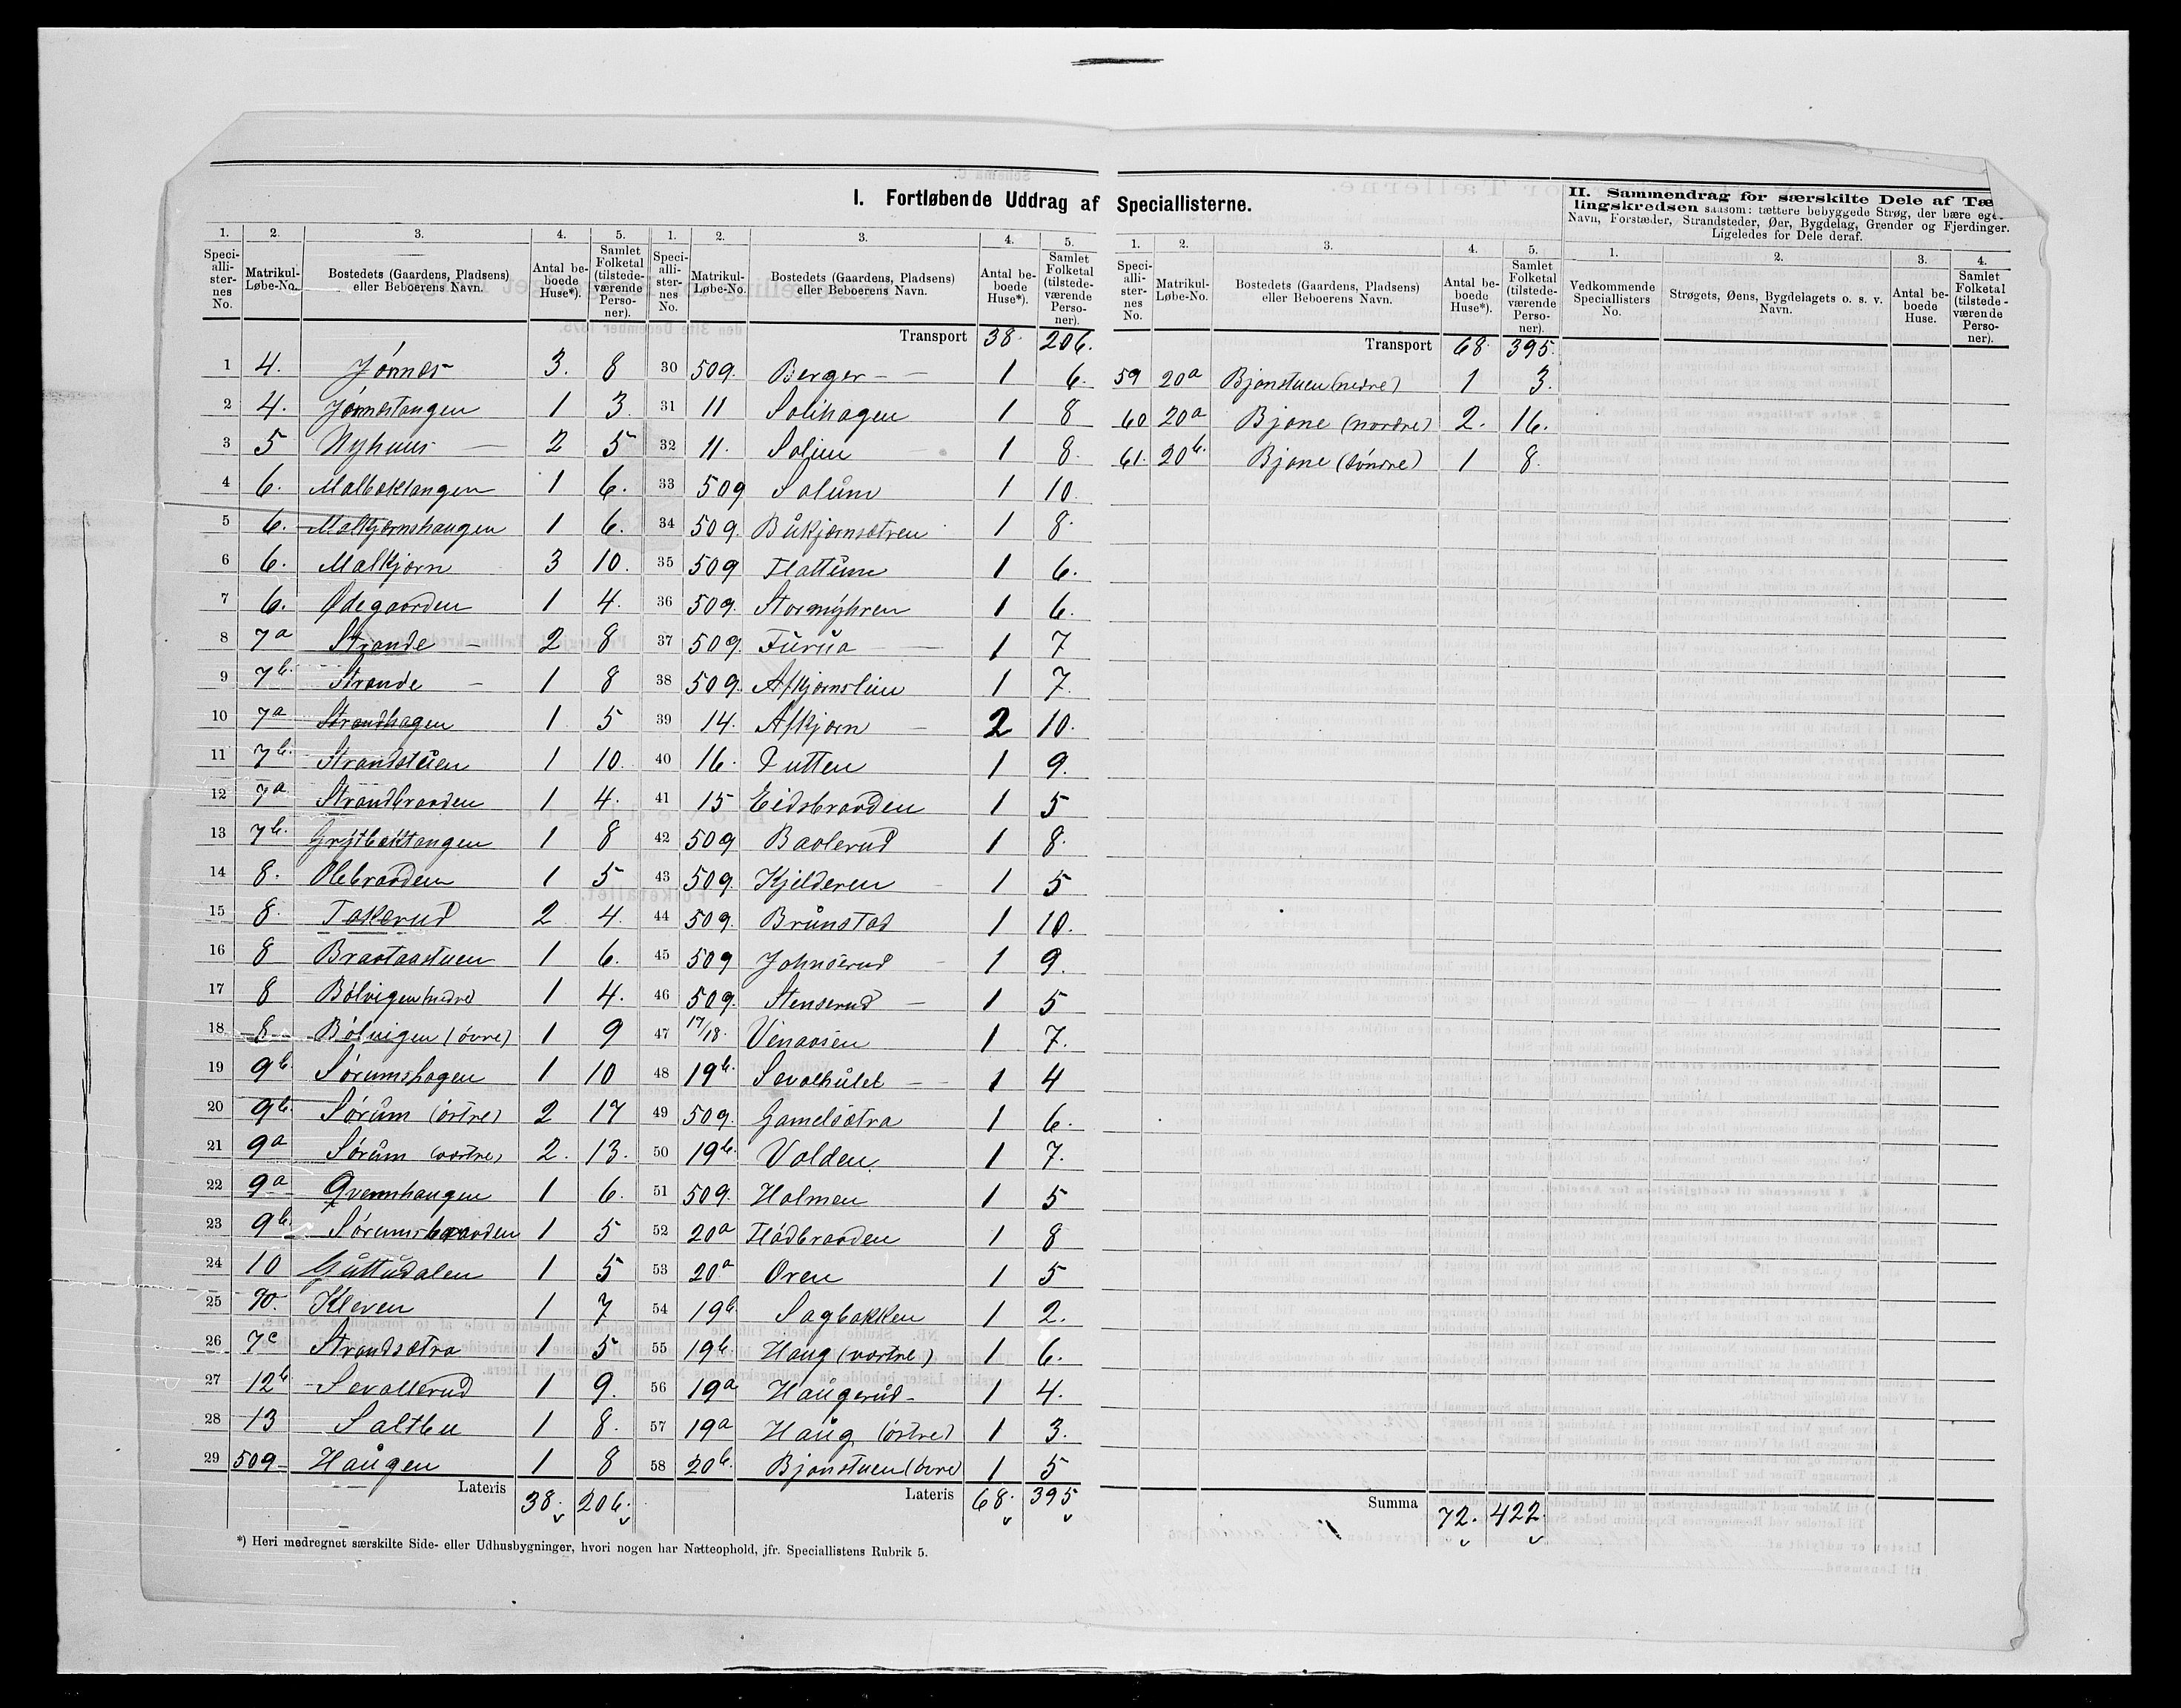 I. Fortløbende Uddrag af Speciallisterne.
1. 2. 3. 4. 5.
Speciallisternes No. | Matrikul-Løbe-No. | Bostedets (Gaardens, Pladsens) eller Beboerens Navn. | Antal beboede Huse*). | Samlet Folketal (tilstedeværende Personer).
1 4. Jønnes 3. 8
2 4. Jønnestangen 1 3
3 5 Nyhuus 2 5
4 6. Malbæktangen 1 6.
5 6. Malkjærnshaugen 1 6.
6 6. Malkjærn 3 10.
7 6. Ødegaarden 1 4.
8 7a Strande 2 8
9 7b. Strande 1 8
10 7a Strandhagen 1 5
11 7b. Strandstuen 1 10.
12 7a Strandbraaden 1 4.
13 7b. Grytbæktangen 1 8
14 8. Olebraaden 1 5
15 8. Takerud 2 4.
16 8 Braataastuen 1 6.
17 8 Bølvigen (nedre) 1 4.
18 8 Bølvigen (øvre) 1 9
19 9b. Sørumshagen 1 10
20 9b. Sørum (østre) 2 17
21 9a Sørum (vestre) 2. 13.
22 9a Qvennhaugen 1 6.
23 9b. Sørumsbraaden 1 5
24 10 Guttudalen 1 5
25 10. Kleven 1 7
26 7c Strandsætra 1 5
27 12b Sevallerud 1 9.
28 13 Saltbu 1 8.
29 509 Haugen 1 8
Lateris 38. 206.
1. 2. 3. 4. 5.
Speciallisternes No. | Matrikul-Løbe-No. | Bostedets (Gaardens, Pladsens) eller Beboerens Navn. | Antal beboede Huse*). | Samlet Folketal (tilstedeværende Personer).
Transport 38. 206.
30 509. Berger 1 6.
31 11 Solihagen 1 8
32 11. Solien 1 8.
33 509 Solum 1 10.
34 509. Båkjernsætren 1 8.
35 509 Flattum 1 6.
36 509. Stormyhren 1 6.
37 509. Furua 1 7
38 509. Afkjærnslien 1 7.
39 14. Afkjærn 2 10.
40 16. Tutten 1 9.
41 15 Eidsbraaden 1 5
42 509 Baalerud 1 8.
43 509. Kjelderen 1 5
44 509. Brunstad 1 10.
45 509 Johnserud 1 9.
46 509. Stenserud 1 5
47 17/18. Venaasen 1 7.
48 19b. Sevalhulet 1 4
49 509. Gamelsætra 1 6.
50 19b. Volden 1 7.
51 509. Holmen 1 5
52 20a Flådbraaden 1 8
53 20a Oren 1 5
54 19b Sagbakken 1 2.
55 19b. Haug (vestre) 1 6.
56 19a Haugerud 1 4.
57 19a Haug (østre) 1 3.
58 20b. Bjønstuen (øvre) 1 5
Lateris 68. 395
1. 2. 3. 4. 5.
Speciallisternes No. | Matrikul-Løbe-No. | Bostedets (Gaardens, Pladsens) eller Beboerens Navn. | Antal beboede Huse*). | Samlet Folketal (tilstedeværende Personer).
Transport 68. 395.
59 20a Bjønstuen (nedre) 1 3.
60 20a Bjøne (nordre) 2. 16.
61. 20b. Bjøne (søndre) 1 8.
Summa 72. 422.
II. Sammendrag for særskilte Dele af Tæ
lingskredsen saasom: tættere bebyggede Strøg, der bære eget
Navn, Forstæder, Strandsteder, Øer, Bygdelag, Grender og Fjerdinger.
Ligeledes for Dele deraf.
1. 2. 3. 4.
Vedkommende Speciallisters No. | Strøgets, Øens, Bygdelagets o. s. v. Navn. | Antal beboede Huse. | Samlet Folketal (tilstedeværende Personer).
*) Heri medregnet særskilte Side- eller Udhusbygninger, hvori nogen har Natteophold, jfr. Speciallistens Rubrik 5.